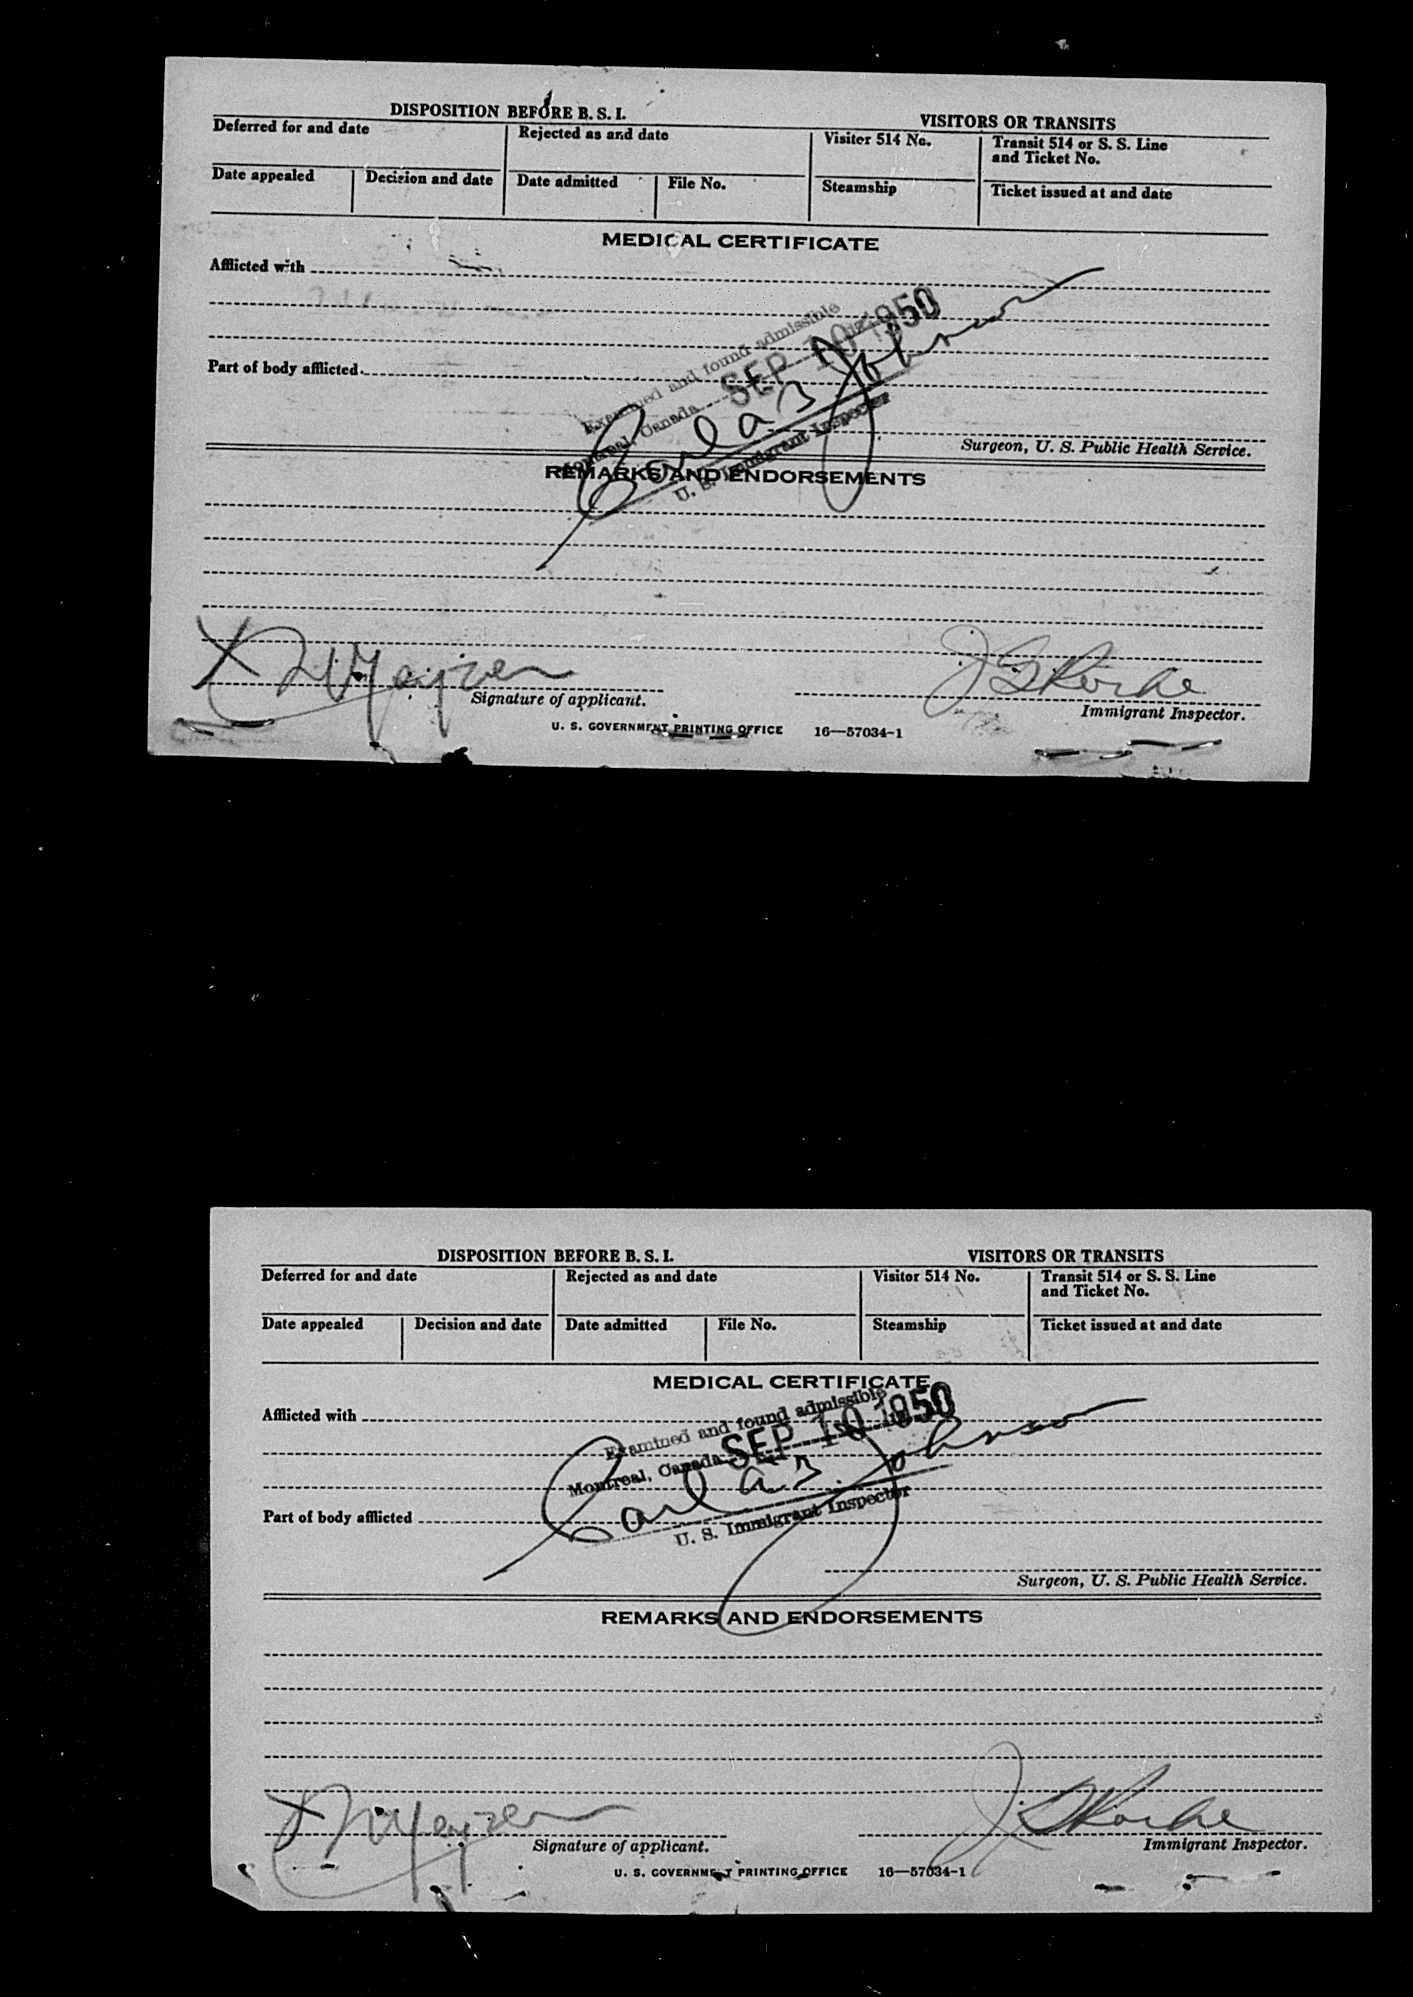 DISPOSITION BEFORE B. S. I.
VISITORS OR TRANSITS
Deferred for and date
Rejected as and date
Visitor 514 No.
Transit 514 or S. S. Line
and Ticket No.
Date appealed
Decision and date
Date admitted
File No.
Steamship
Ticket issued at and date
MEDICAL CERTIFICATE
Afflicted with
Examined and found admissible
Montreal, Canada SEP 10 1950
Part of body afflicted
Johnson
U. S. Immigrant Inspector
Surgeon, U. S. Public Health Service.
REMARKS AND ENDORSEMENTS
Signature of applicant.
Immigrant Inspector.
U. S. GOVERNMENT PRINTING OFFICE 16—57034-1
DISPOSITION BEFORE B. S. I.
VISITORS OR TRANSITS
Deferred for and date
Rejected as and date
Visitor 514 No.
Transit 514 or S. S. Line
and Ticket No.
Date appealed
Decision and date
Date admitted
File No.
Steamship
Ticket issued at and date
MEDICAL CERTIFICATE
Afflicted with
Examined and found admissible
Montreal, Canada SEP 10 1950
Johnson
Part of body afflicted
U. S. Immigrant Inspector
Surgeon, U. S. Public Health Service.
REMARKS AND ENDORSEMENTS
Signature of applicant.
Immigrant Inspector.
U. S. GOVERNMENT PRINTING OFFICE 16—57034-1